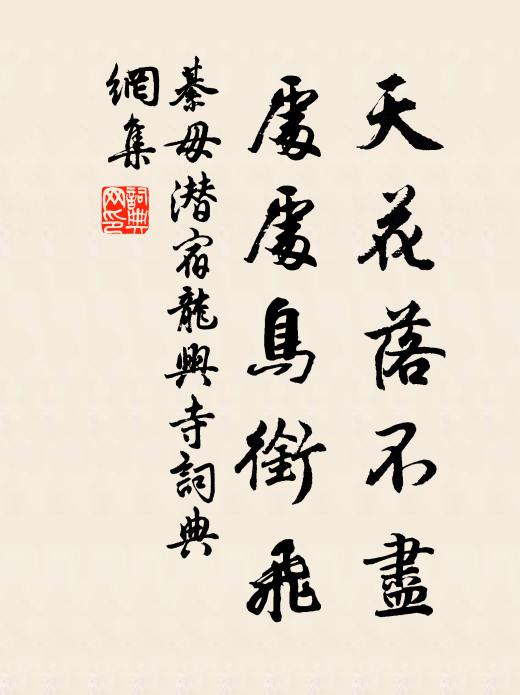 天花落不盡
處處鳥銜飛
綦毋潛宿龍興寺詞典
網集
詞典網印